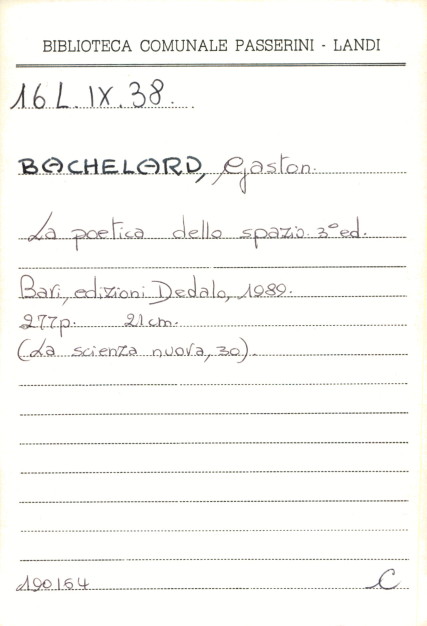 BIBLIOTECA COMUNALE PASSERINI - LANDI
16 L. IX. 38.
BACHELARD, Gaston.
La poetica dello spazio. 3° ed.
Bari, edizioni Dedalo, 1989.
277p. 21cm.
(La scienza nuova, 30).
190154 C